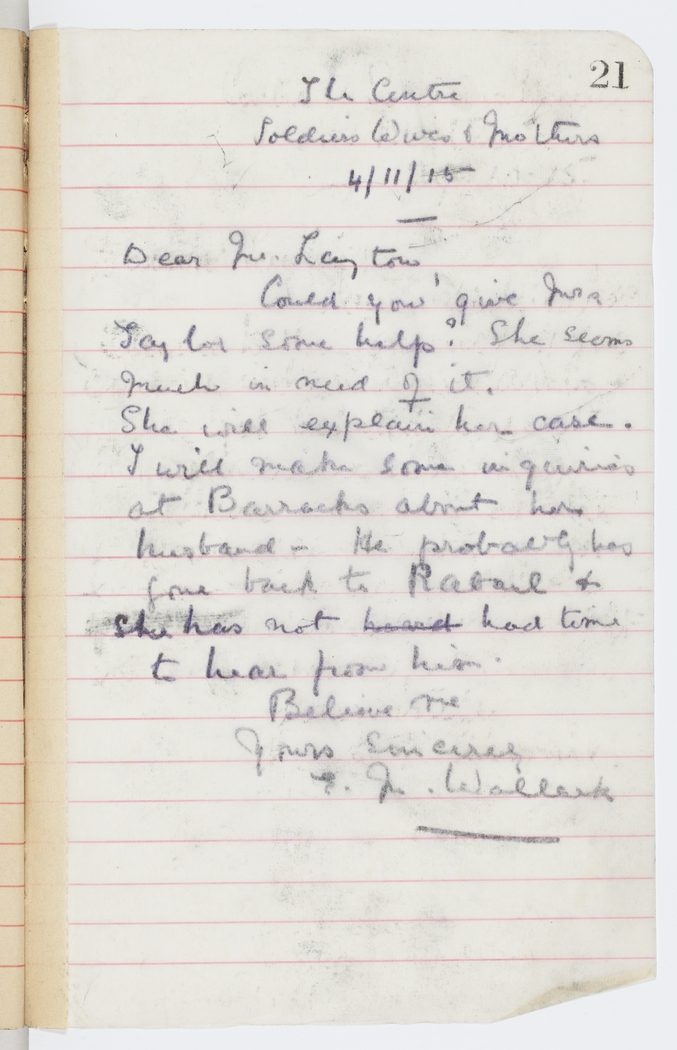 21
The Centre
Soldiers Wives & Mothers
4/11/15
Dear Mr. Layton
Could you give Mrs
Taylor some help? She seems
much in need of it.
She will explain her case.
I will make some inquiries
at Barracks about her
husband - He probably has
gone back to Rabaul &
she has not heard had time
to hear from him.
Believe me
Yours Sincerely
F. M. Wallack